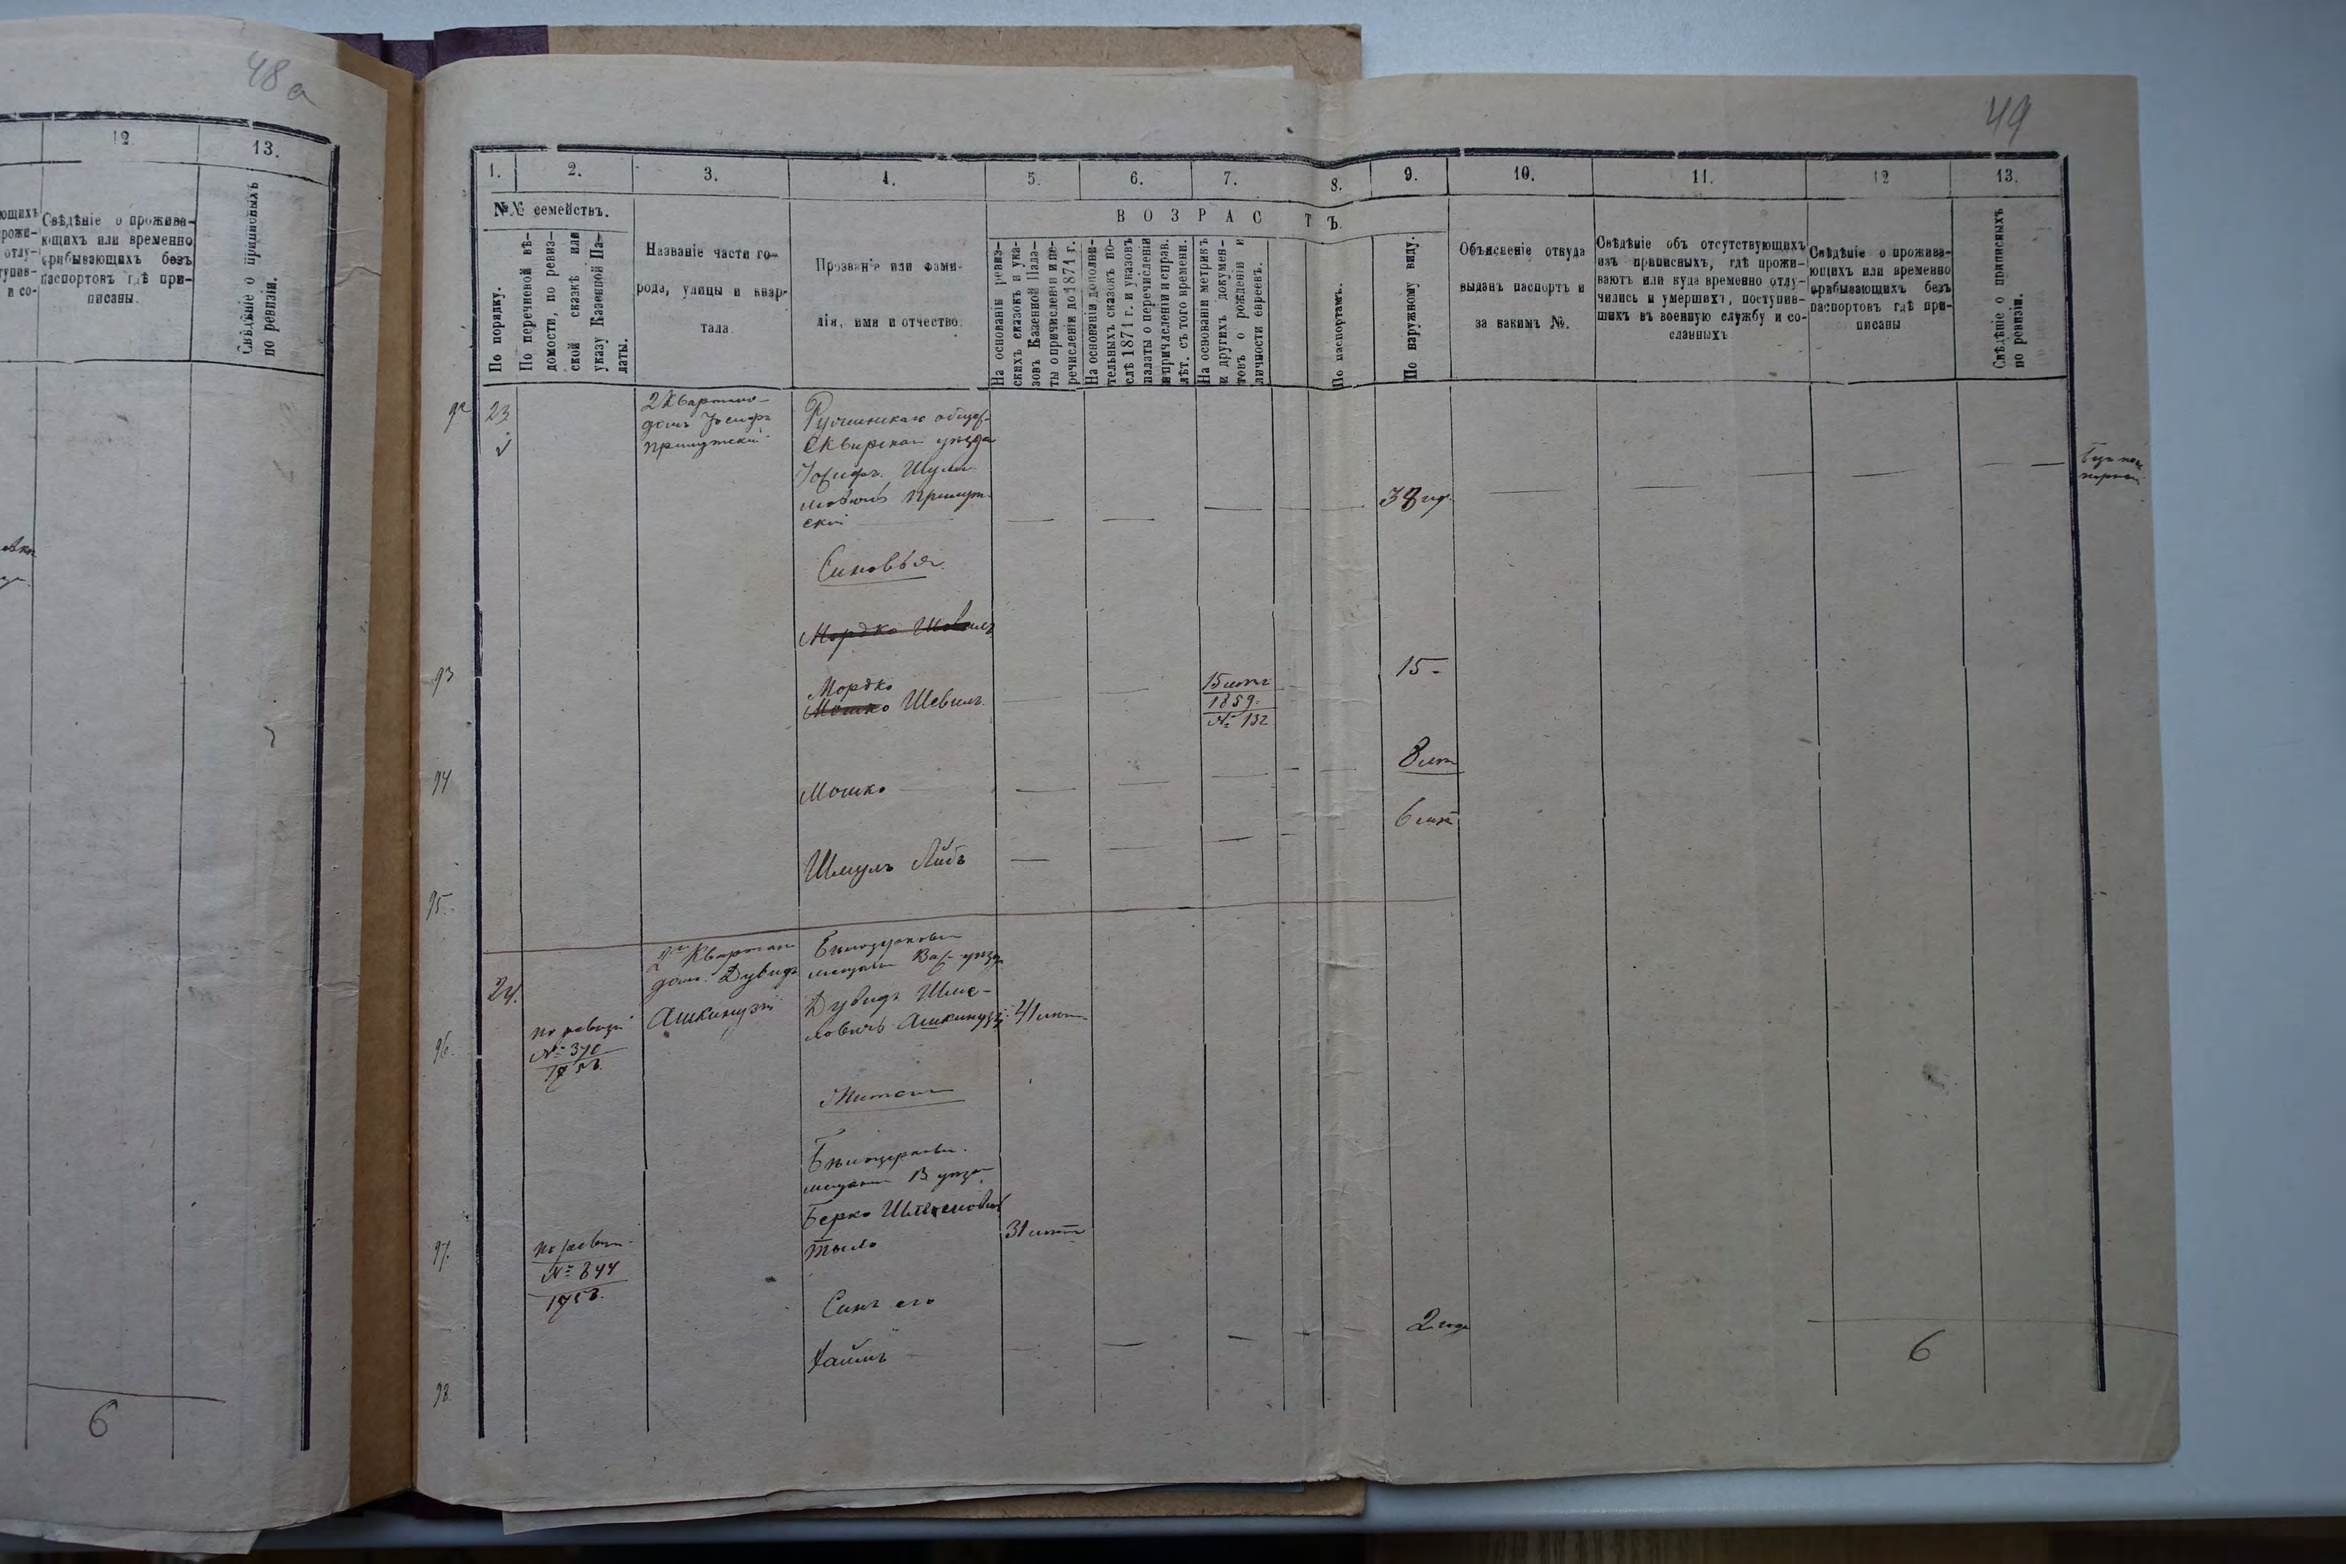 48а
12.
13.
Свѣдѣніе о прожива-
ющихъ или временно
прибывающихъ безъ
паспортовъ гдѣ при-
писаны.
Свѣдѣніе о приписныхъ
по ревизіи.
6
49
1.
2.
3.
4.
5.
6.
7.
8.
9.
10.
11.
12
13.
№№ семействъ.
По порядку.
По перечневой вѣ-
домости, по ревиз-
ской сказкѣ или
указу Казенной Па-
латы.
Названіе части го-
рода, улицы и квар-
тала.
Прозваніе или фами-
лія, имя и отчество.
ВОЗРАСТЪ.
На основаніи ревиз-
скихъ сказокъ и ука-
зовъ Казенной Пала-
ты о причисленіи и пе-
речисленіи до 1871 г.
На основаніи дополни-
тельныхъ сказокъ по-
слѣ 1871 г. и указовъ
палаты о перечисленіи
и причисленіи и справ.
лѣт. съ того времени.
На основаніи метрикъ
и другихъ докумен-
товъ о рожденіи и
личности евреевъ.
По паспортамъ.
По наружному виду.
Объясненіе откуда
выданъ паспортъ и
за какимъ №.
Свѣдѣніе объ отсутствующихъ
изъ приписныхъ, гдѣ прожи-
ваютъ или куда временно отлу-
чились и умершихъ, поступив-
шихъ въ военную службу и со-
сланныхъ
Свѣдѣніе о прожива-
ющихъ или временно
прибывающихъ безъ
паспортовъ гдѣ при-
писаны
Свѣдѣніе о приписныхъ
по ревизіи.
92
23
2 Квартала
домъ Іосифъ
Сквирскаго уѣзда
38
Сыновья
Мордко Шевель
93
Мордко
Мошко Шевель
15 лѣтъ
1859.
№ 132
15
94
Мошко
8 лѣт
95
Шмуль Лейбъ
6 лѣт
24.
Квартала
домъ Дувидъ
Ашкинузи
Бѣлоцерковс
мѣщан Вас. уѣзда
96.
по ревизи
№ 370
1858.
Дувидъ Шмю-
ловичъ Ашкинузи
41 лѣт
Жители
Бѣлоцерковс.
мѣщан В уѣзда
97.
по ревиз
№ 844
1858.
Берко
31 лѣт
Сынъ его
98.
Хаимъ
2 года
6